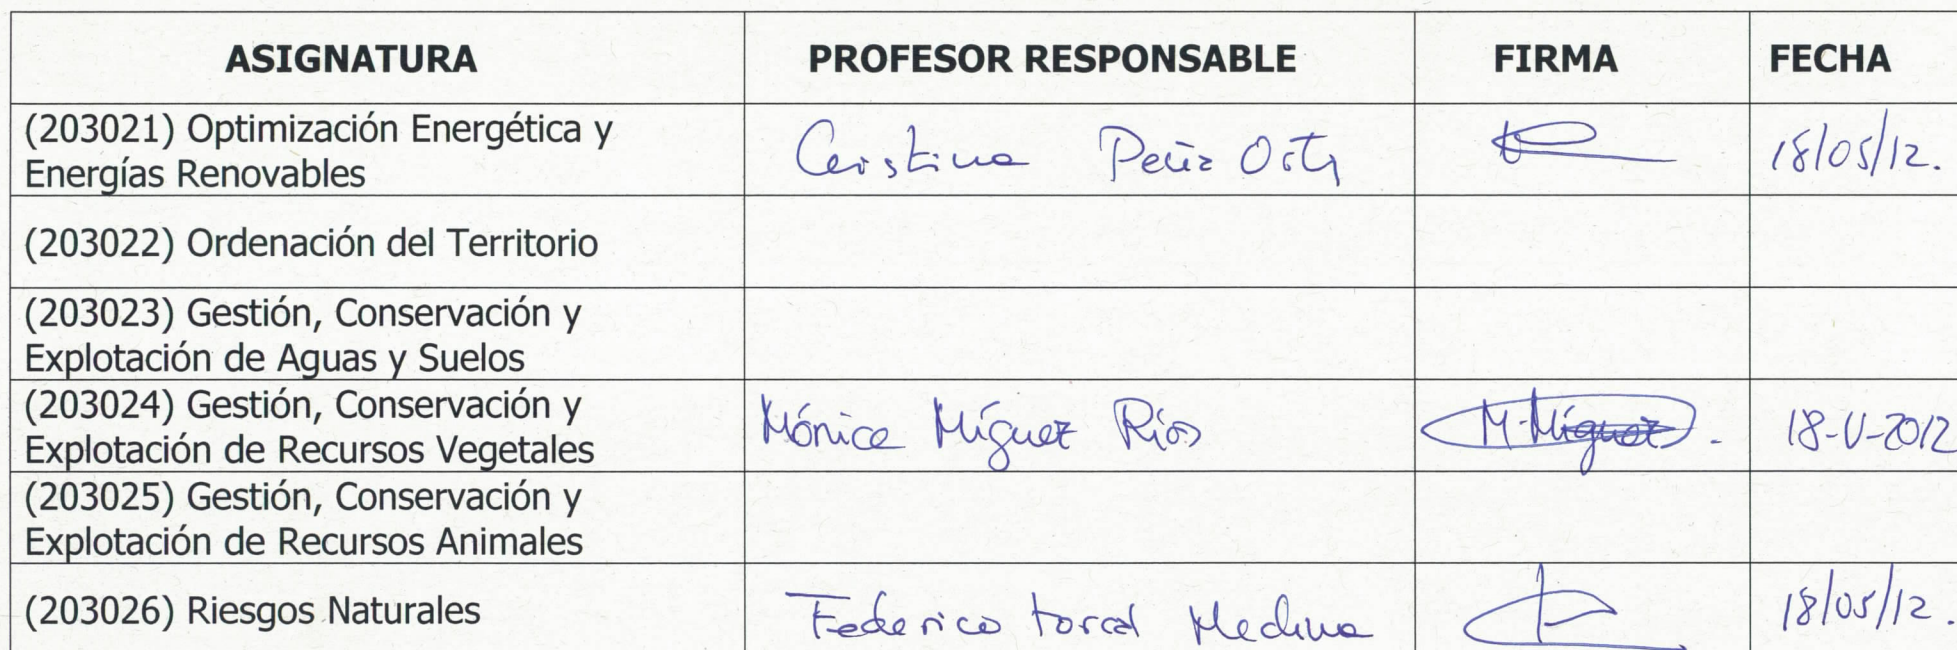 ASIGNATURA PROFESOR RESPONSABLE FIRMA FECHA
(203021) Optimización Energética y
Energías Renovables
Cristina 18/05/12.
(203022) Ordenación del Territorio
(203023) Gestión, Conservación y
Explotación de Aguas y Suelos
(203024) Gestión, Conservación y
Explotación de Recursos Vegetales
Mónica Míguez Ríos M. Míguez. 18-V-2012
(203025) Gestión, Conservación y
Explotación de Recursos Animales
(203026) Riesgos Naturales
Federico Medina 18/05/12.